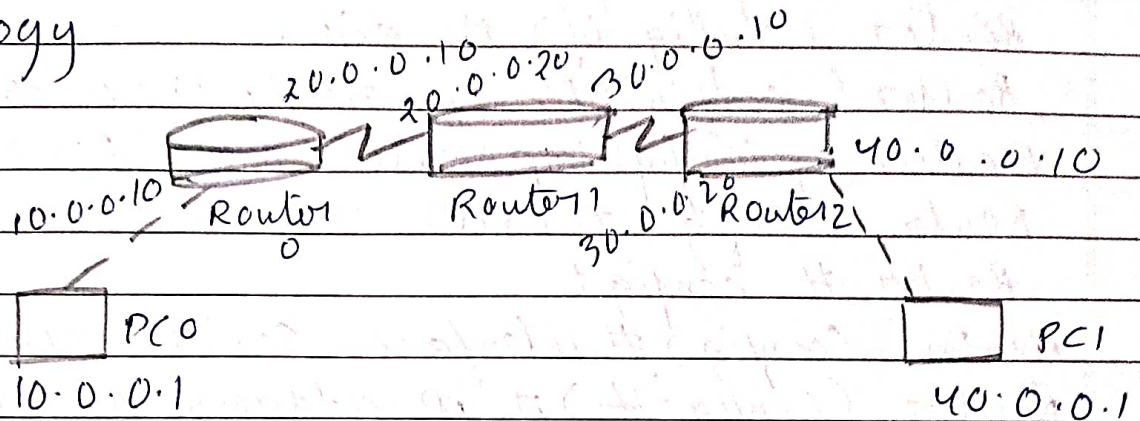 ogy
20.0.0.10
20.0.0.20
30.0.0.10
40.0.0.10
10.0.0.10
Router
0
Router1
30.0.0.20
Router2
PC0
PC1
10.0.0.1
40.0.0.1